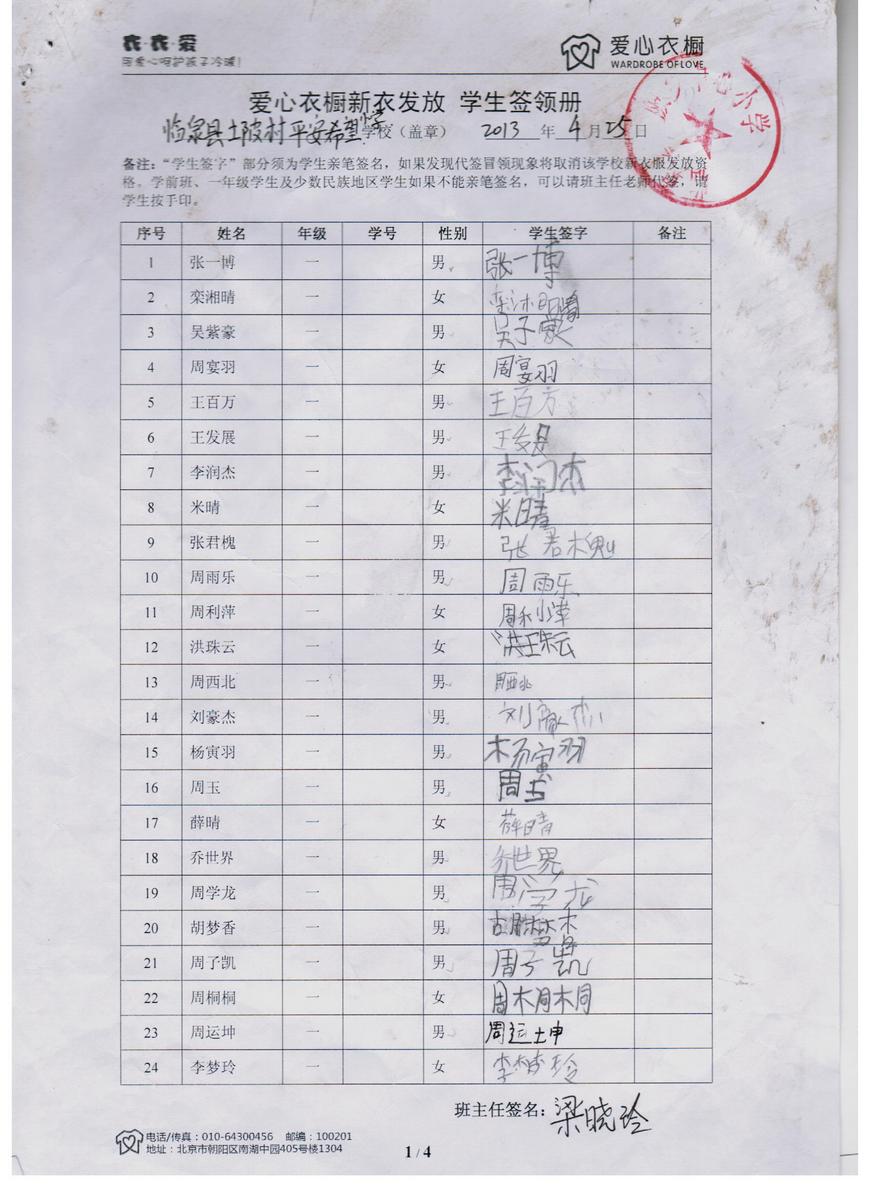 衣·衣·爱
用爱心呵护孩子冷暖!
爱心衣橱
WARDROBE OF LOVE
爱心衣橱新衣发放 学生签领册
临泉县土陂村平安希望小学 学校（盖章） 2013 年 4 月 25 日
小学
备注：“学生签字”部分须为学生亲笔签名，如果发现代签冒领现象将取消该学校新衣服发放资
格。学前班、一年级学生及少数民族地区学生如果不能亲笔签名，可以请班主任老师代签，请
学生按手印。
序号 姓名 年级 学号 性别 学生签字 备注
1 张一博 一 男 张一博
2 栾湘晴 一 女
3 吴紫豪 一 男 吴子豪
4 周宴羽 一 女 周宴羽
5 王百万 一 男 王百万
6 王发展 一 男
7 李润杰 一 男 李润杰
8 米晴 一 女 米晴
9 张君槐 一 男 张君槐
10 周雨乐 一 男 周雨乐
11 周利萍 一 女 周利萍
12 洪珠云 一 女 洪珠云
13 周西北 一 男 周西北
14 刘豪杰 一 男 刘豪杰
15 杨寅羽 一 男 杨寅羽
16 周玉 一 男 周玉
17 薛晴 一 女 薛晴
18 乔世界 一 男 乔世界
19 周学龙 一 男 周学龙
20 胡梦香 一 男 胡梦香
21 周子凯 一 男 周子凯
22 周桐桐 一 女 周桐桐
23 周运坤 一 男 周运坤
24 李梦玲 一 女 李梦玲
班主任签名：梁晓玲
电话/传真：010-64300456 邮编：100201
地址：北京市朝阳区南湖中园405号楼1304
1 / 4